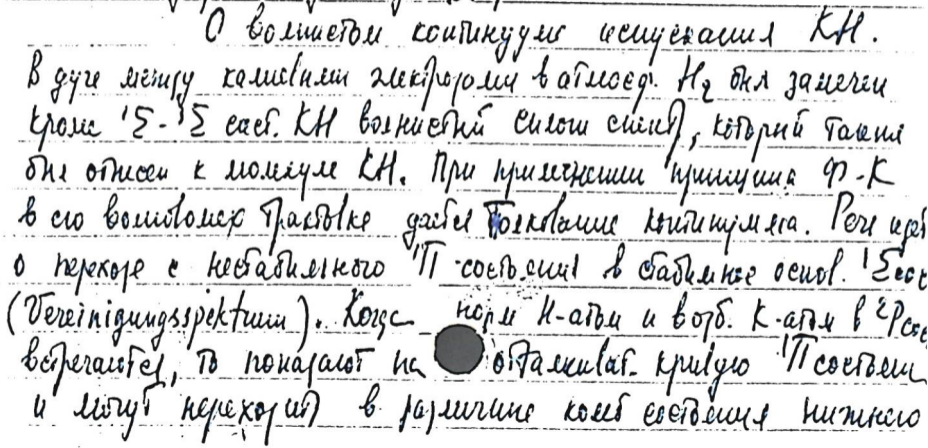 О волнистом континууме испускания KH.
В дуге между калиевыми электродами в атмосф. H₂ был замечен
кроме ¹Σ-¹Σ сист. KH волнистый сплош спектр, который также
был отнесен к молекуле KH. При применении принципа Ф-К
в его волновомех трактовке дается толкование континуума. Речь идет
о переходе с нестабильного ¹Π-состояния в стабильное основ. ¹Σ сос
(Vereinigungsspektrum). Когда норм H-атом и возб. K-атом в ²P сос
встречаются, то попадают на отталкиват. кривую ¹Π состоян
и могут переходить в различные колеб состояния нижнего